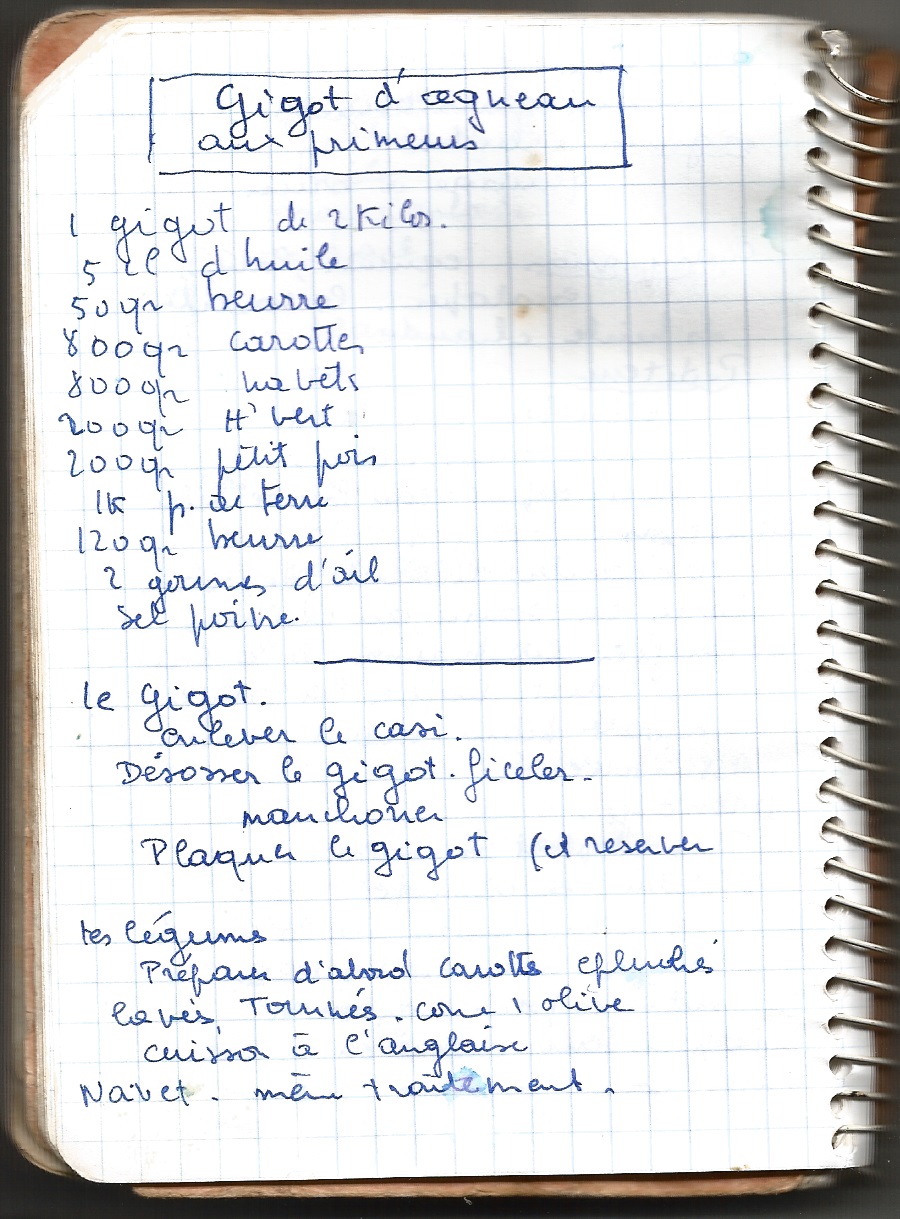 Gigot d'agneau
aux primeurs
1 gigot de 2 Kilos.
5 cl d'huile
50 gr beurre
800 gr carottes
800 gr navets
200 gr H' vert
200 gr petit pois
1K p. de terre
120 gr beurre
2 gousses d'ail
Sel poivre.
le Gigot.
enlever le casi.
Désosser le gigot. ficeler.
manchoner
Plaquer le gigot (et reserver
les légumes
Préparer d'abord carottes epluchés
lavés, Tournés. come 1 olive
cuisson à l'anglaise
Navet. même traitement.